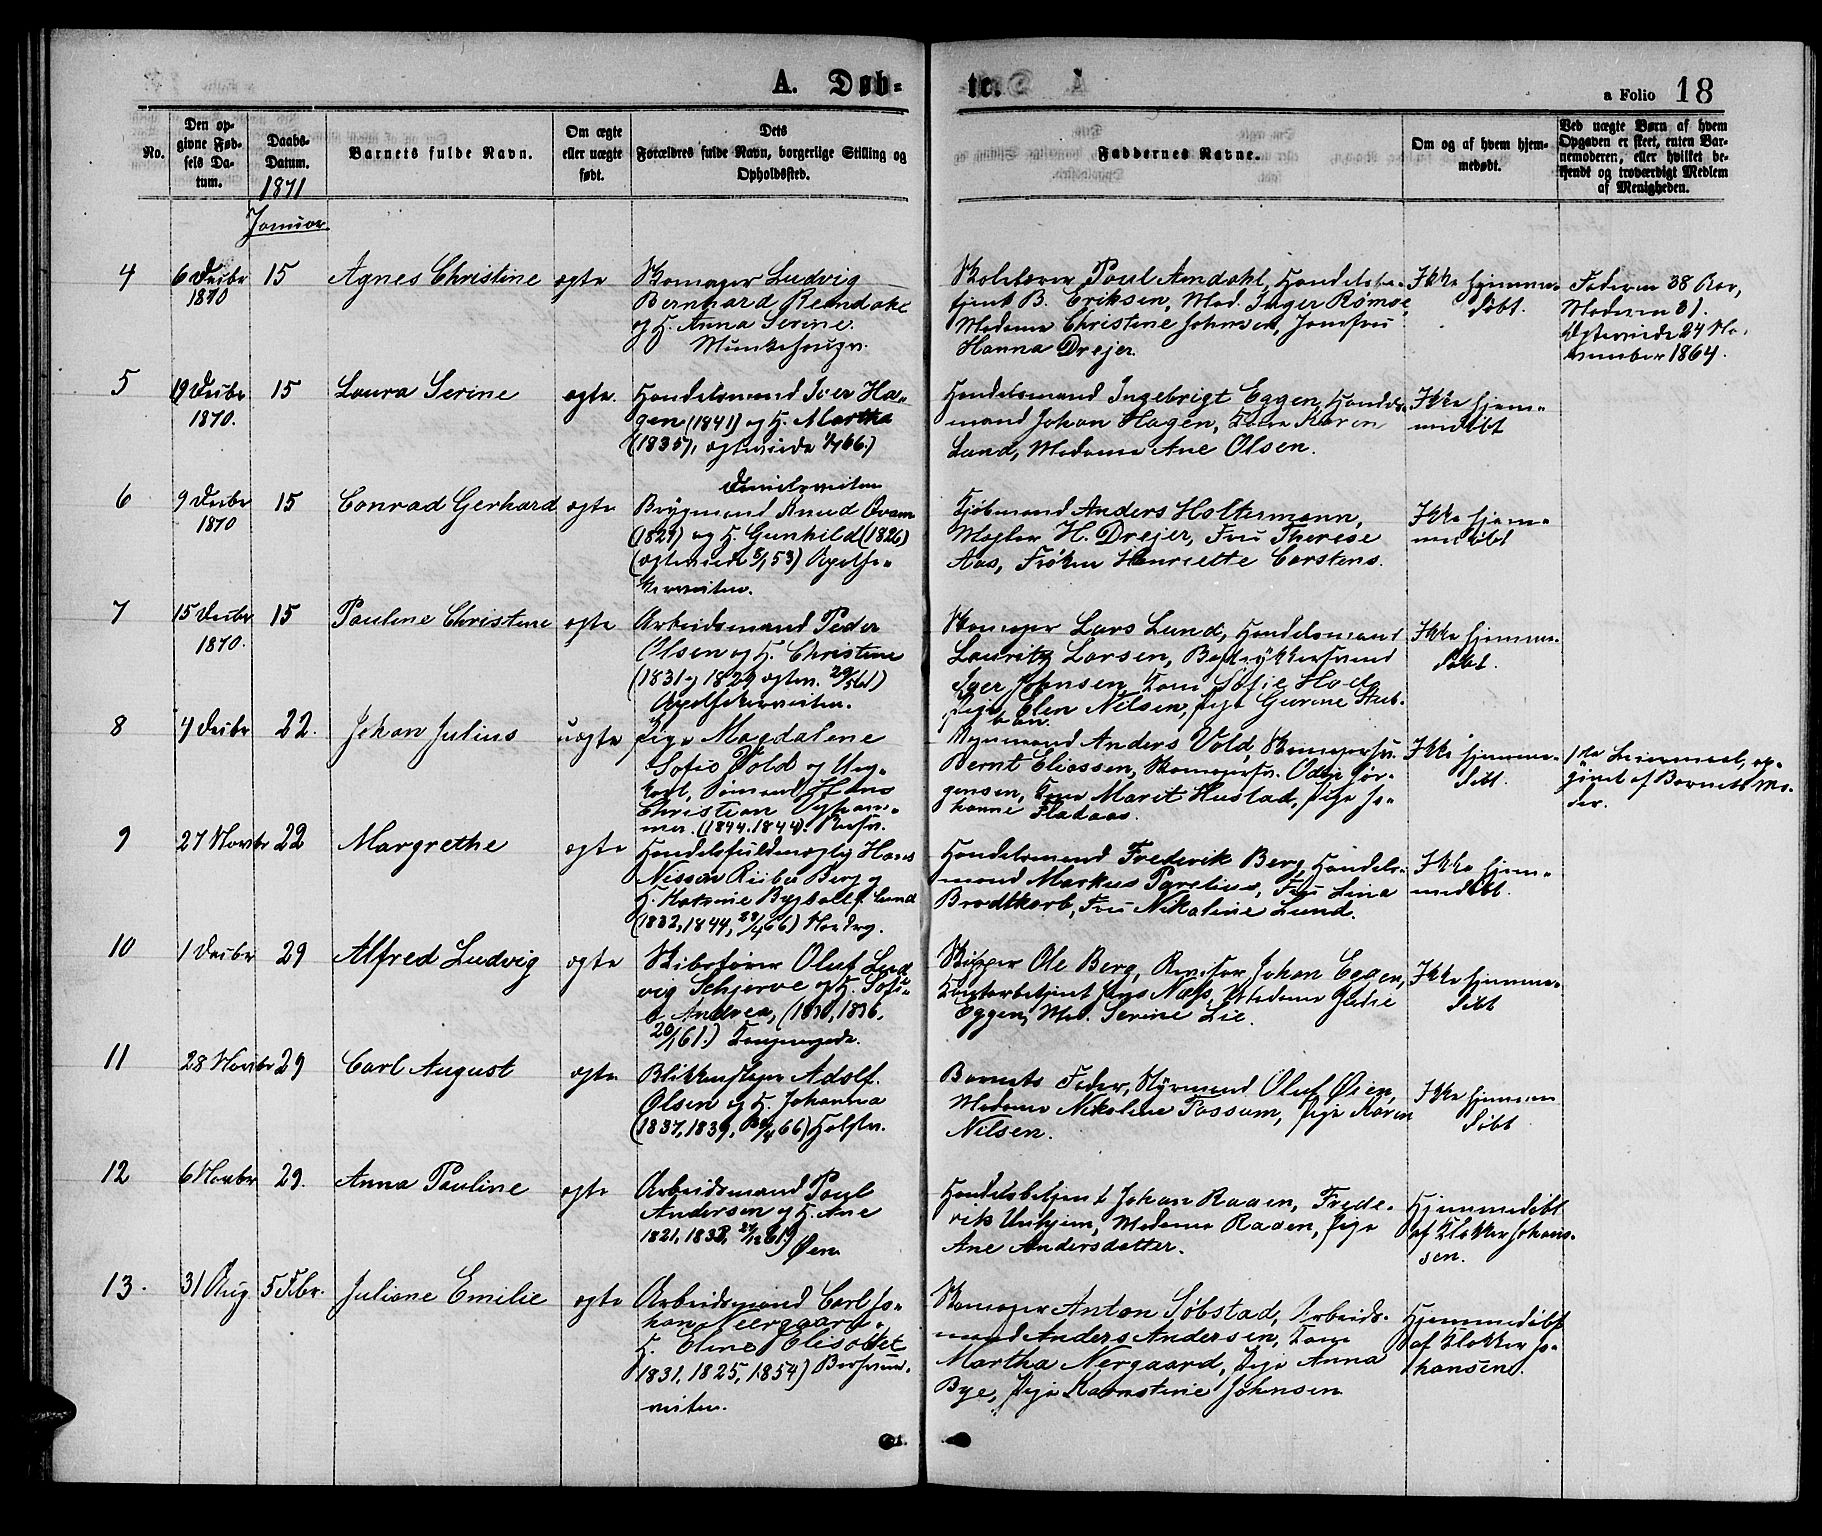 A. Døb-
te.
a Folio 18
No.
Den op-
givne Fød-
sels Da-
tum.
Daabs-
Datum.
1871
Januar
Barnets fulde Navn.
Om ægte
eller uægte
født.
Dets
Forældres fulde Navn, borgerlige Stilling og
Opholdssted.
Faddernes Navne.
Om og af hvem hjem-
medøbt.
Ved uægte Børn af hvem
Opgaven er skeet, enten Bar-
nemoderen, eller hvilket be-
kjendt og troværdigt Medlem
af Menigheden.
4
6 Decbr
1870
15
Agnes Christine
ægte
Skomager Ludvig
Bernhard Remdahl
og H. Anna Serine.
Munkehougn.
Skolelærer Paul Amdahl, Handelsbe-
tjent B. Eriksen, Mad. Inger Rømoe,
Madame Christine Johnsen, Jomfru
Hanna Drejer.
Ikke hjemme-
døbt.
Faderen 38 Aar,
Moderen 31.
Ægteviede 24 No-
vember 1864.
5
19 Decbr
1870.
15
Laura Serine
ægte.
Handelsmand Iver Ha-
gen (1841) og H. Martha
(1835), ægteviede 66.)
Handelsmand Ingebrigt Eggen, Handels-
mand Johan Hagen, Kone Karen
Lund, Madame Ane Olsen.
Ikke hjem-
medøbt
6
9 Decbr
1870
15
Conrad Gerhard
ægte
Brygmand Knud Qvam
(1827) og H. Gunhild (1826)
(ægteviede 53) Apothe-
kerveiten.
Kjøbmand Anders Holtermann,
Mægler H. Drejer, Fru Therese
Aas, Frøken Henriette Carstens.
Ikke hjem-
medøbt
7
15 Decbr
1870.
15
Pauline Christine
ægte
Arbeidsmand Peder
Olsen og H. Christine
(1831 og 1829 ægtev. 29/5 61)
Apothekerveiten.
Skomager Lars Lund, Handelsmand
Lauritz Larsen, Bogtrykkersvend
Iger Johnsen, Kone Sofie Hoel
Pige Elen Nilsen, Pige Gurine Stub-
ban.
Ikke hjemme-
døbt.
8
4 Decbr
22.
Johan Julius
uægte
Pige Magdalene
Sofie Vold og Ung-
karl, Sømand Hans
Christian
mer. (1844. 1844).
Anders Vold, Skomagersv.
Bernt Eliassen, Skomagersv. Odin Jør-
gensen, Kone Marit Hustad, Pige Jo-
hanne Fladaas.
Ikke hjemme-
døbt.
1ste Leiermaal, op-
givet af Barnets Mo-
der.
9
27 Novbr
22
Margrethe
ægte
Handelsfuldmægtig Hans
Nissen Riiber Berg og
H. Katrine f. Lund
(1832, 1844, 66) Nordrg.
Handelsmand Frederik Berg, Handels-
mand Markus Parelius, Fru Lina
Brodtkorb, Fru Nikoline Lund.
Ikke hjem-
medøbt.
10
1 Decbr
29
Alfred Ludvig
ægte
Skibsfører Oluf Lud
vig Schjerve og H. Sofi-
e Andrea, (1830, 1836,
20/1 61.) Kongensgade.
Skipper Ole Berg, Revisor Johan Eggen,
Contorbetjent Jens Næss, Madame Julie
Eggen, Mad. Serine Lie.
Ikke hjemme-
døbt
11
28 Novbr
29
Carl August
ægte
Blikkenslager Adolf
Olsen og H. Johanna
(1837, 1839, 66)
Barnets Fader, Styrmand Oluf Øien,
Madame Nikoline Fossum, Pige Karen
Nilsen.
Ikke hjemme
døbt
12
6 Novbr
29.
Anna Pauline
ægte
Arbeidsmand Poul
Andersen og H. Ane
1821, 1832, 27/12 61.)
Øen
Handelsbetjent Johan Raaen, Frede-
rik Unhjem, Madame Raaen, Pige
Ane Andersdatter.
Hjemmedøbt
af Klokker Johan-
sen.
13.
31 Aug.
5 Febr.
Juliane Emilie
ægte
Arbeidsmand Carl Jo-
han Neergaard,
H. Eline Elisabet
1831, 1825, 1854)
veiten.
Skomager Anton Søbstad, Arbeids-
mand Anders Andersen, Kone
Martha Nergaard, Pige Anna
Bye, Pige Karnstine Johnsen
Hjemmedøbt
af Klokker Jo-
hansen.